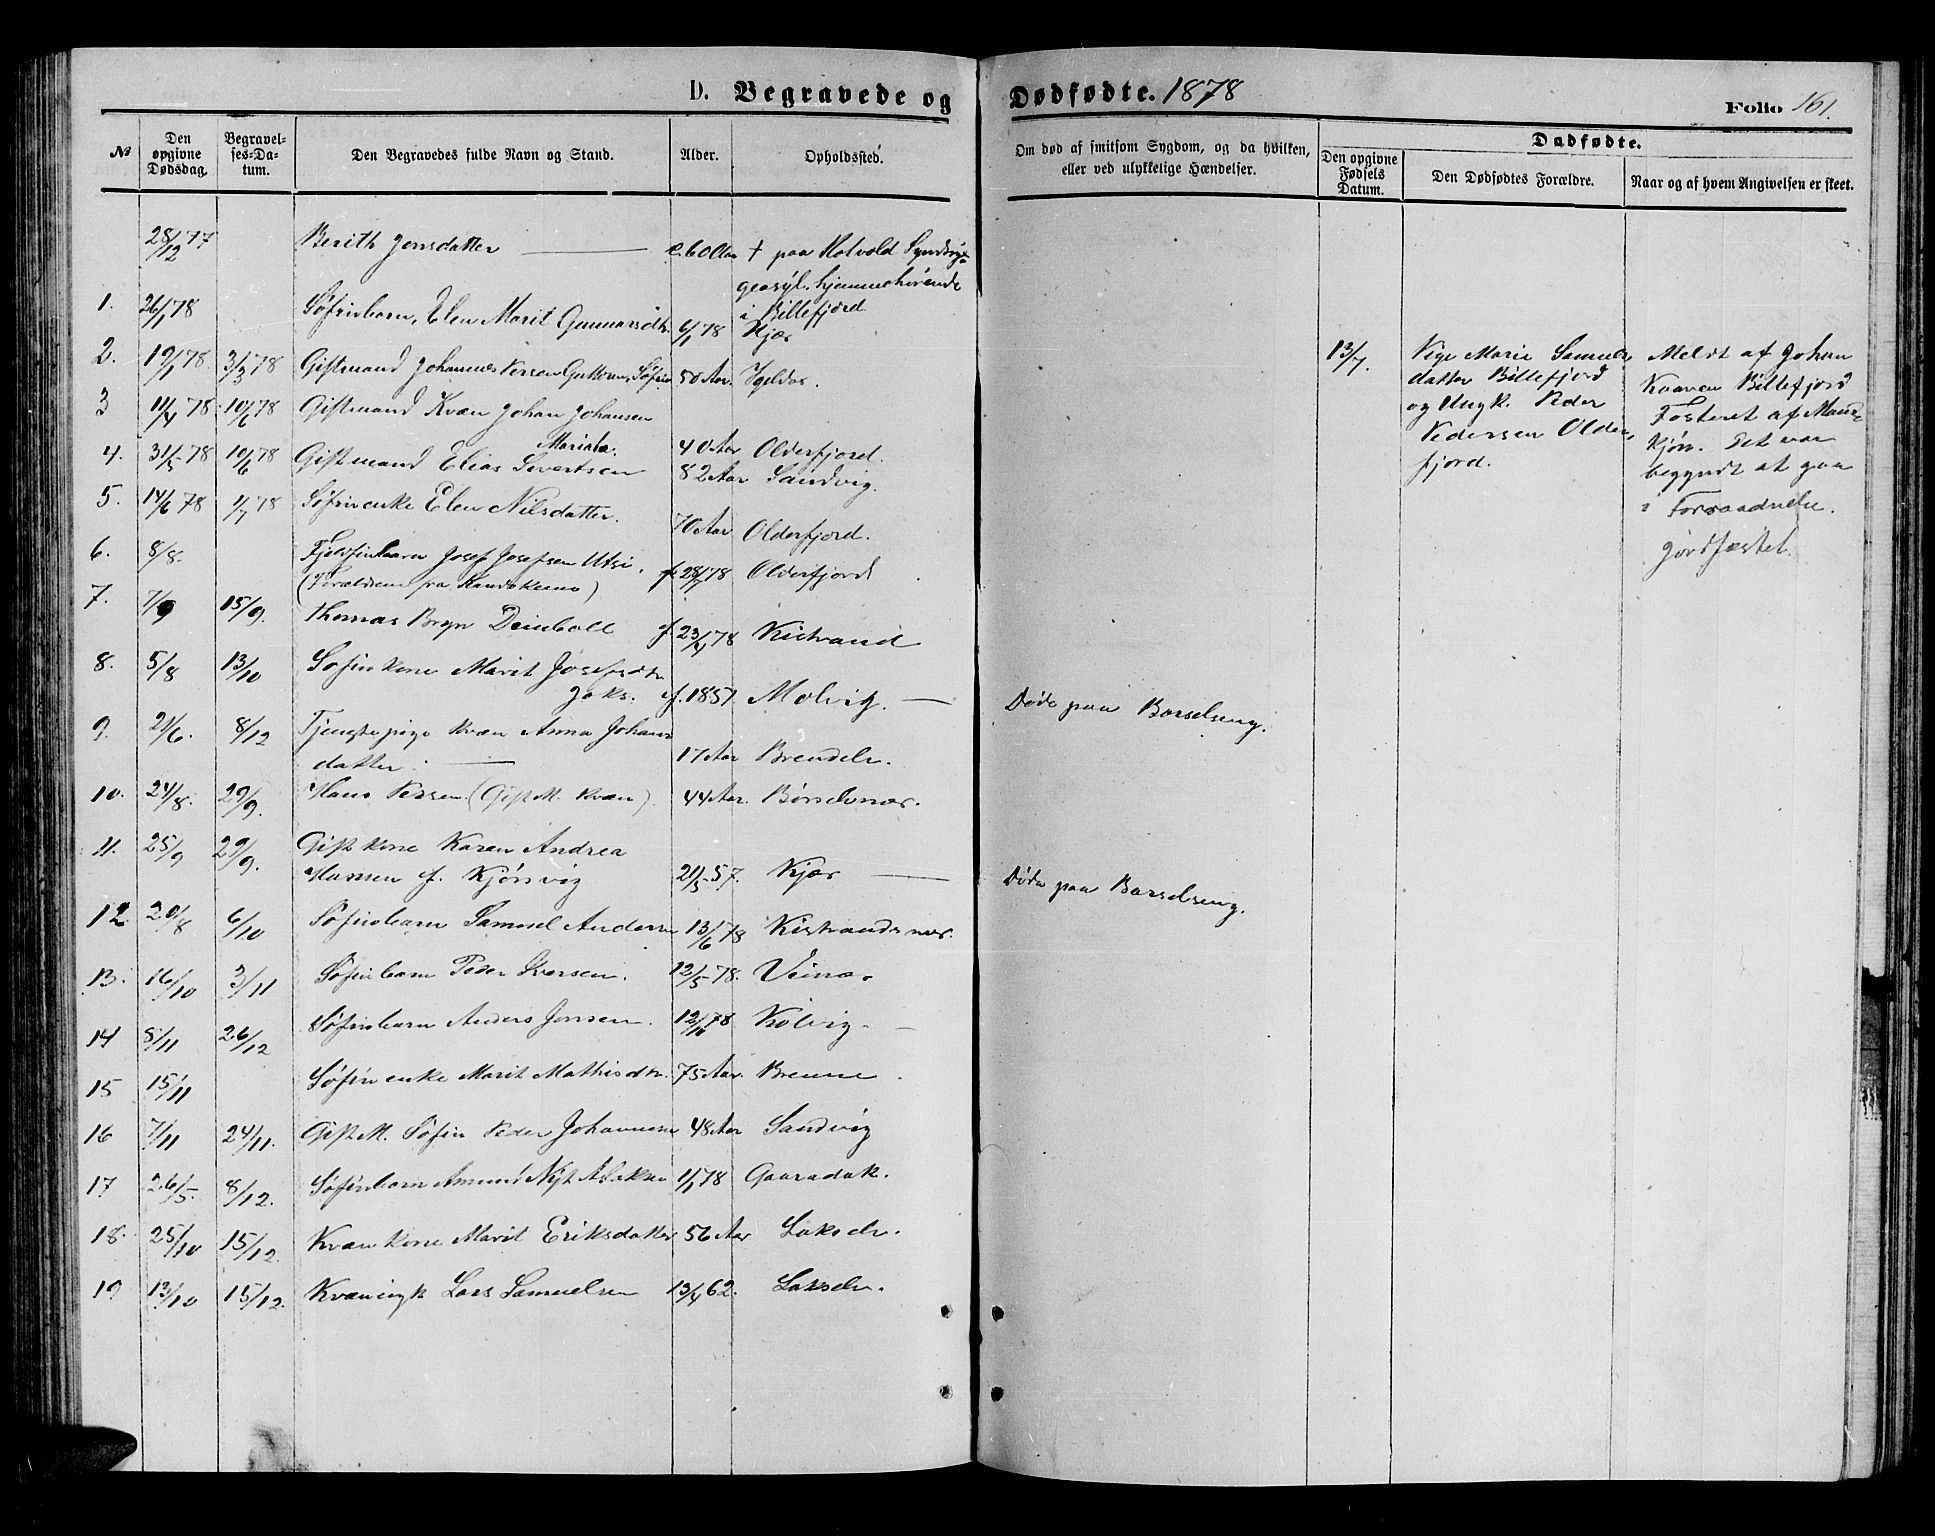 D. Begravede og Dødfødte. 1878
Folio 161.
№
Den opgivne Dødsdag.
Begravelses-Datum.
Den Begravedes fulde Navn og Stand.
Alder.
Opholdssted.
Om død af smitsom Sygdom, og da hvilken, eller ved ulykkelige Hændelser.
Dødfødte.
Den opgivne Fødsels Datum.
Den Dødfødtes Forældre.
Naar og af hvem Angivelsen er skeet.
28/12 77 Berith Jonsdatter — c. 60 Aar † paa Rotvold Syndsy-
geasyl. hjemmehørende
i Billefjord
1. 26/1 78 Søfinbarn, Elen Marit Gunnarsdtr. 6/1 78 Kjær
2. 19/1 78. 3/3 78 Giftmand Johannes Persen Guttorm, Søfin 50 Aar. Ygeldas.
3 11/4 78 10/6 78 Giftmand Kvæn Johan Johansen
Mariala. 40 Aar Olderfjord.
4. 31/5 78 10/6 78 Giftmand Elias Sivertsen 82 Aar Sandvig.
5. 14/6 78 1/7 78 Søfinenke Elen Nilsdatter. 70 Aar Olderfjord.
6. 8/8. Fjeldfinbarn Josef Josefsen Utsi, f. 28/7 78 Olderfjord
(Forældrene fra Kautokeino)
7. 7/9 15/9. Thomas Bryn Deinboll f. 23/4 78 Kistrand
8. 5/8 13/10 Søfinkone Marit Josefsdtr.
Joks. f. 1851. Molvig. — Døde paa Barselseng.
9. 21/6. 8/12 Tjenstepige Kvæn Anna Johans
datter. — 17 Aar Brendelv.
10. 24/8. 29/9. Hans Persen (Gift M. Kvæn). 44 Aar. Børselvnær.
11. 25/9 29/9. Gift Kone Karen Andrea
Hansen f. Kjønvig 21/5 57. Kjær — Døde paa Barselseng.
12 20/8 6/10 Søfinbarn Samuel Andersen 13/6 78 Kistrandsnær.
13. 16/10 3/11 Søfinbarn Peder Iversen. 12/5 78. Veinæs
14 8/11 26/12 Søfinbarn Anders Jonsen. 12/10 78 Kolvig. —
15 15/11 Søfin enke Marit Mathisdtr. 75 Aar. Brenne.
16 7/11 24/11. Gift M. Søfin Peder Johannesen 48 Aar Sandvig
17 26/5. 8/12. Søfinbarn Amund Nyt Aslaksen 1/1 78 Gaaradak.
18. 25/10 15/12. Kvæn Kone Marit Eriksdatter 56 Aar Lakselv.
19 13/10 15/12. Kvæn ungk Lars Samuelsen 13/4 62. Lakselv.
13/7. Pige Marie Samuels
datter Billefjord
og Ungk. Peder
Pedersen Older
fjord.
Meldt af Johan
Kvæven Billefjord
Fosteret af Mand-
kjøn. Det var
begyndt at gaa
i Forraadnelse.
Jordfæstet.